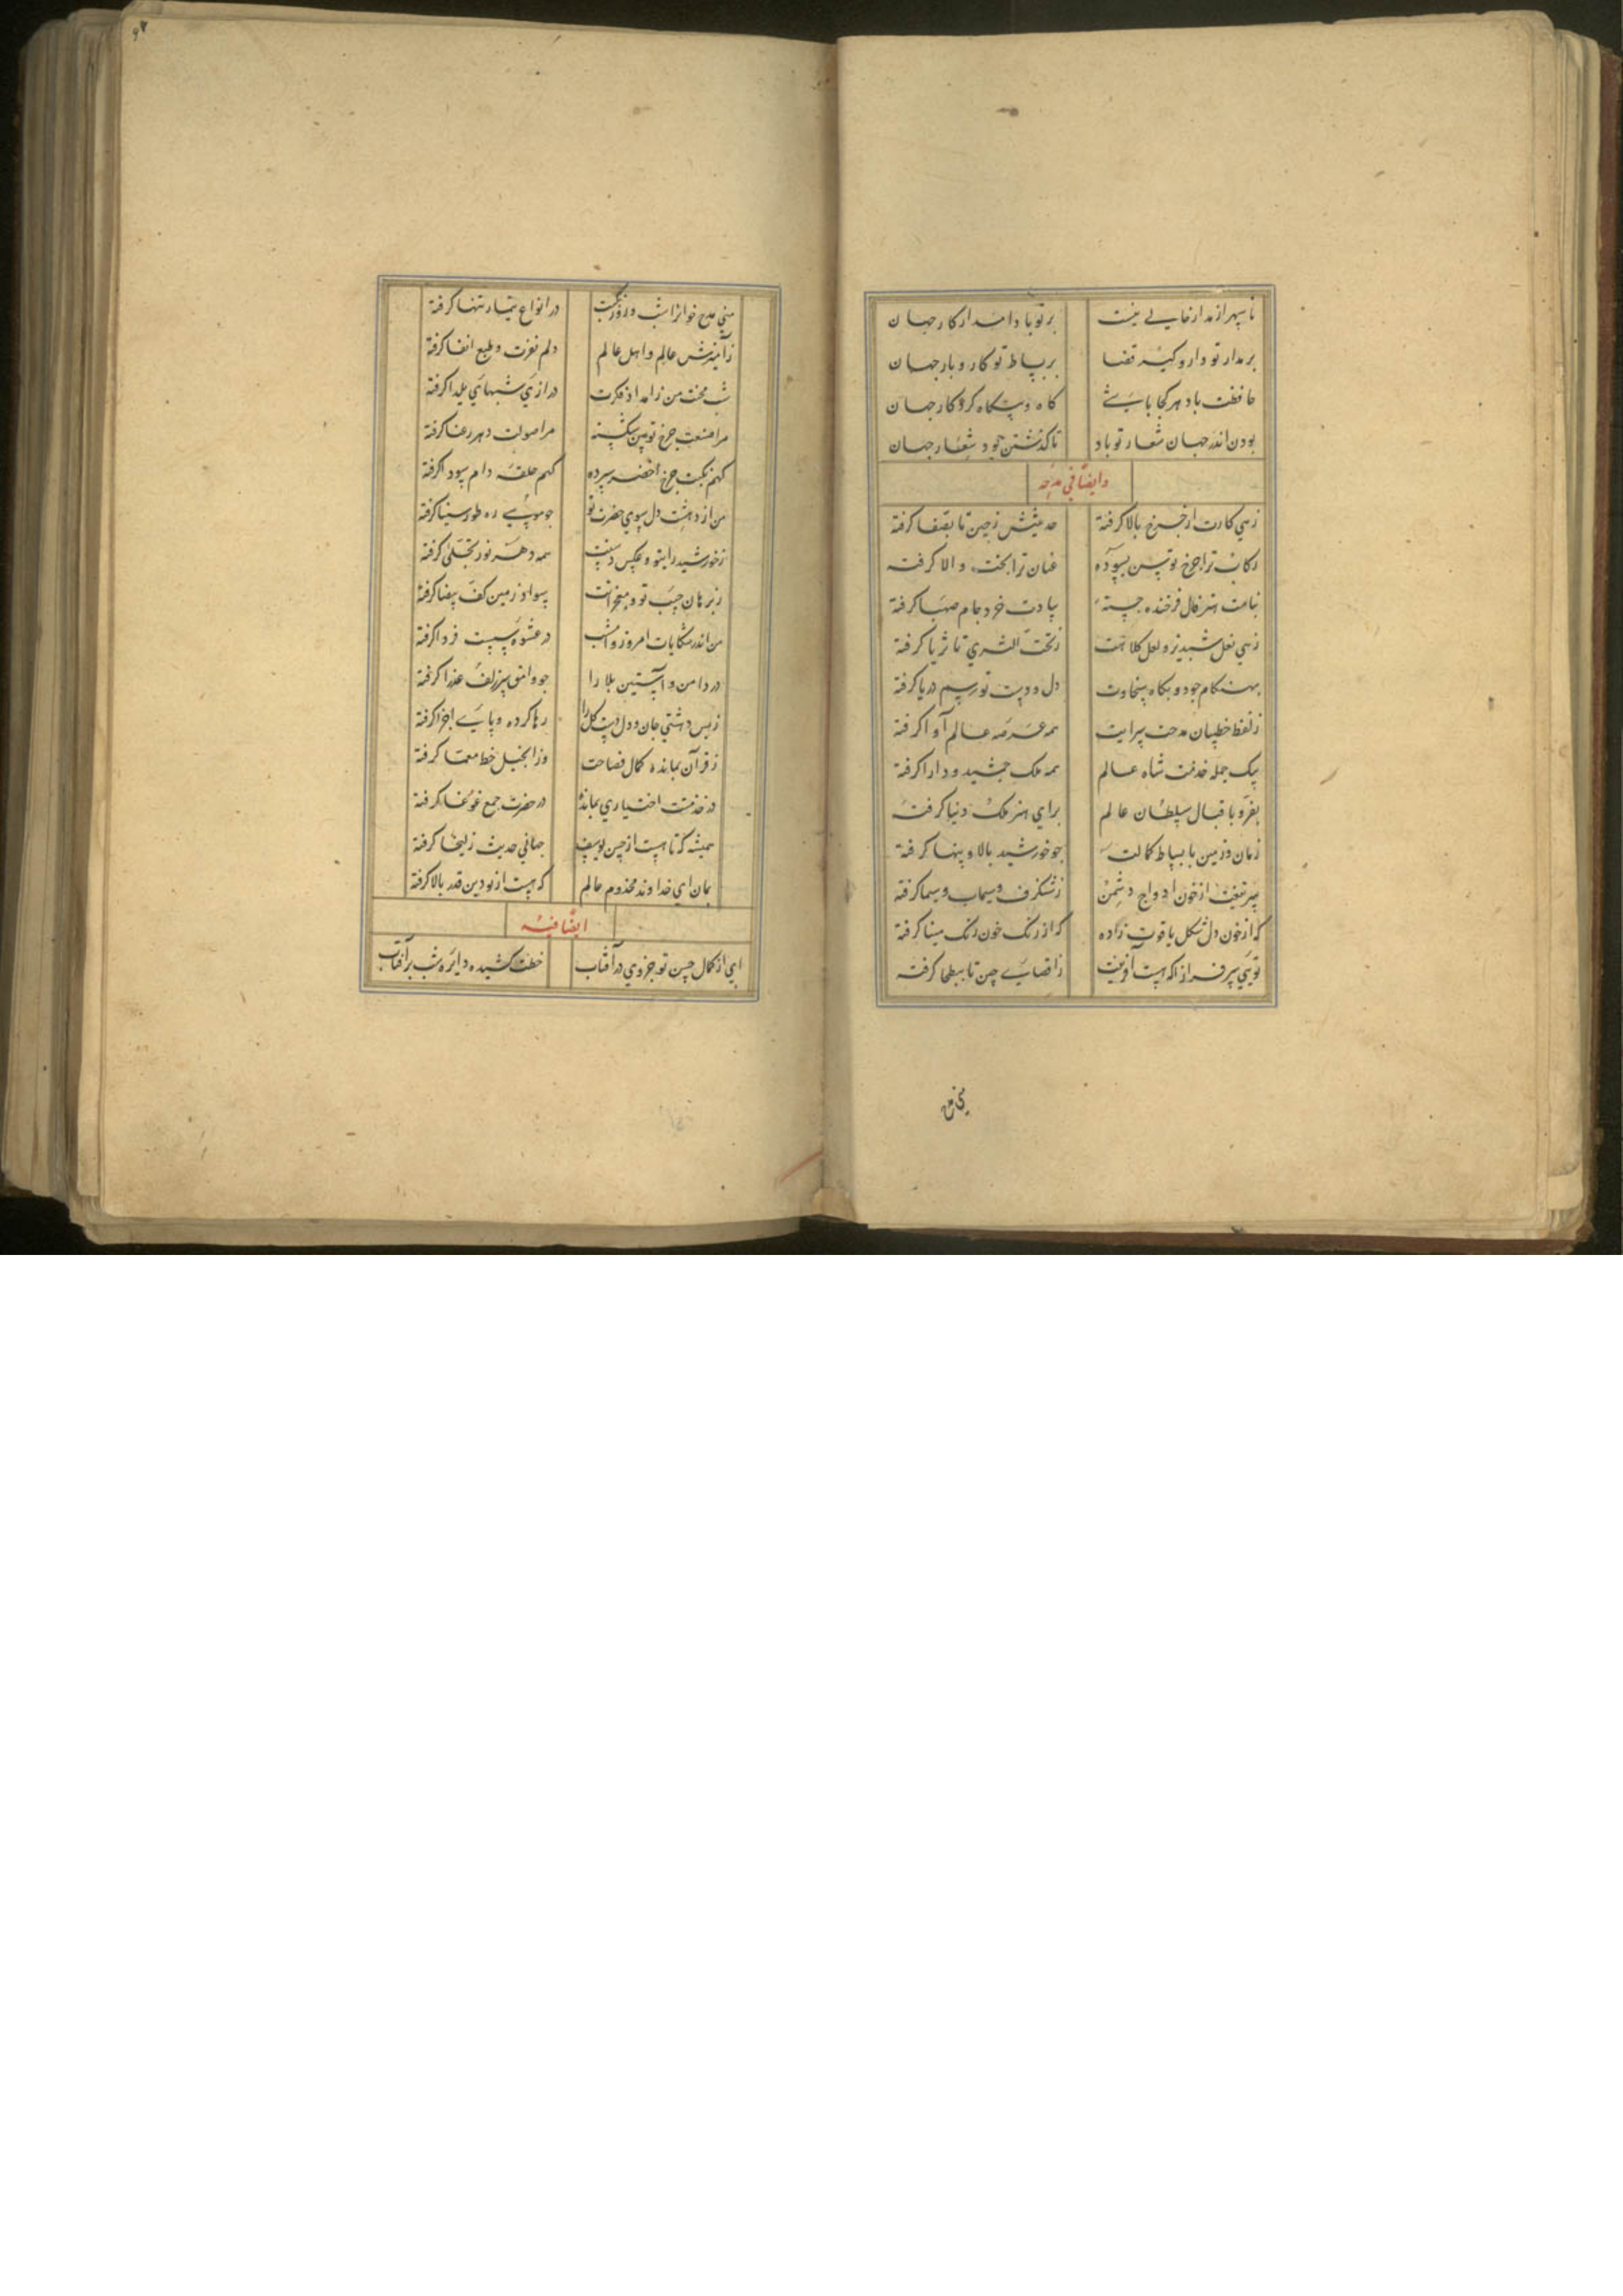 تا سپهر از مدار خالی نیست بر تو بادا مدار کار جهان
بر مدار تو دارو کینه قضا بر بساط تو کار و بار جهان
حافظت باد هر کجا باشی کاه و بیکاه کردکار جهان
بودن اندر جهان شعار تو باد تا کذشتن جود شعار جهان
وایضا فی مدحه
زهی کارت از جرخ بالا کرفته حدیثش زجین تا بصفا کرفته
رکاب ترا جرخ توسن بسوده عنان ترا بخت والا کرفته
بنامت هنر فال فرخنده جسته بیادت خرد جام صهبا کرفته
زهی نعل شبدیز و لعل کلاهت زتحت الثری تا ثریا کرفته
بهنکام جود و بکاه سخاوت دل و دست تو رسم دریا کرفته
زلفظ خطیبان مدحت سرایت همه عرصه عالم آوا کرفته
بیک حمله خدمت شاه عالم همه ملک جمشید و دارا کرفته
بفر و باقبال سلطان عالم برای هنر ملک دنیا کرفته
زمان و زمین با بساط کمالت جو خورشید بالا و پهنا کرفته
سر تیغت از خون اوداج دشمن زشنکرف و سیماب و سیما کرفته
که از خون دل شکل یاقوت زاده که از رنک خون رنک مینا کرفته
تویی سرفراز اکه هست آفرینت زاقصای چین تا ببطحا کرفته
منی مدح
منی مدح خوانرا شب و روز در انواع تیمار تنها کرفته
زآمیزش عالم و اهل عالم دلم نفرت و طبع انفا کرفته
شب محنت من زامداد فکرت درازی شبهای یلدا کرفته
مرا صنعت جرخ توسن شکسته مرا صولت دهر رعنا کرفته
کهم نکبت جرخ اخضر سپرده کهم حلقه دام سودا کرفته
من از دهشت دل سوی حضرت تو جو موسی ره طور سینا کرفته
زخورشید رایت و عکس دستت همه دهر نور تجلی کرفته
زبرهان جیب تو و معجزاتت سواد زمین کف بیضا کرفته
من اندر شکایات امروز و امشب در عشوه بست فردا کرفته
در دامن و آستین بلا را جو وامق سر زلف عذرا کرفته
زبس دهشتی جان و دل دست کل را رها کرده و پای اجزا کرفته
زقرآن بمانده کمال فصاحت وز انجیل خط معما کرفته
در خدمت اختیاری بمانده در حضرت جمع غوغا کرفته
همیشه که تا هست از حسن یوسف جهانی حدیث زلیخا کرفته
بمان ای خداوند مخدوم عالم که هست از تو دین قدر بالا کرفته
ایضا فیه
ای از کمال حسن تو جزوی در آفتاب خطت کشیده دایره شب بر آفتاب